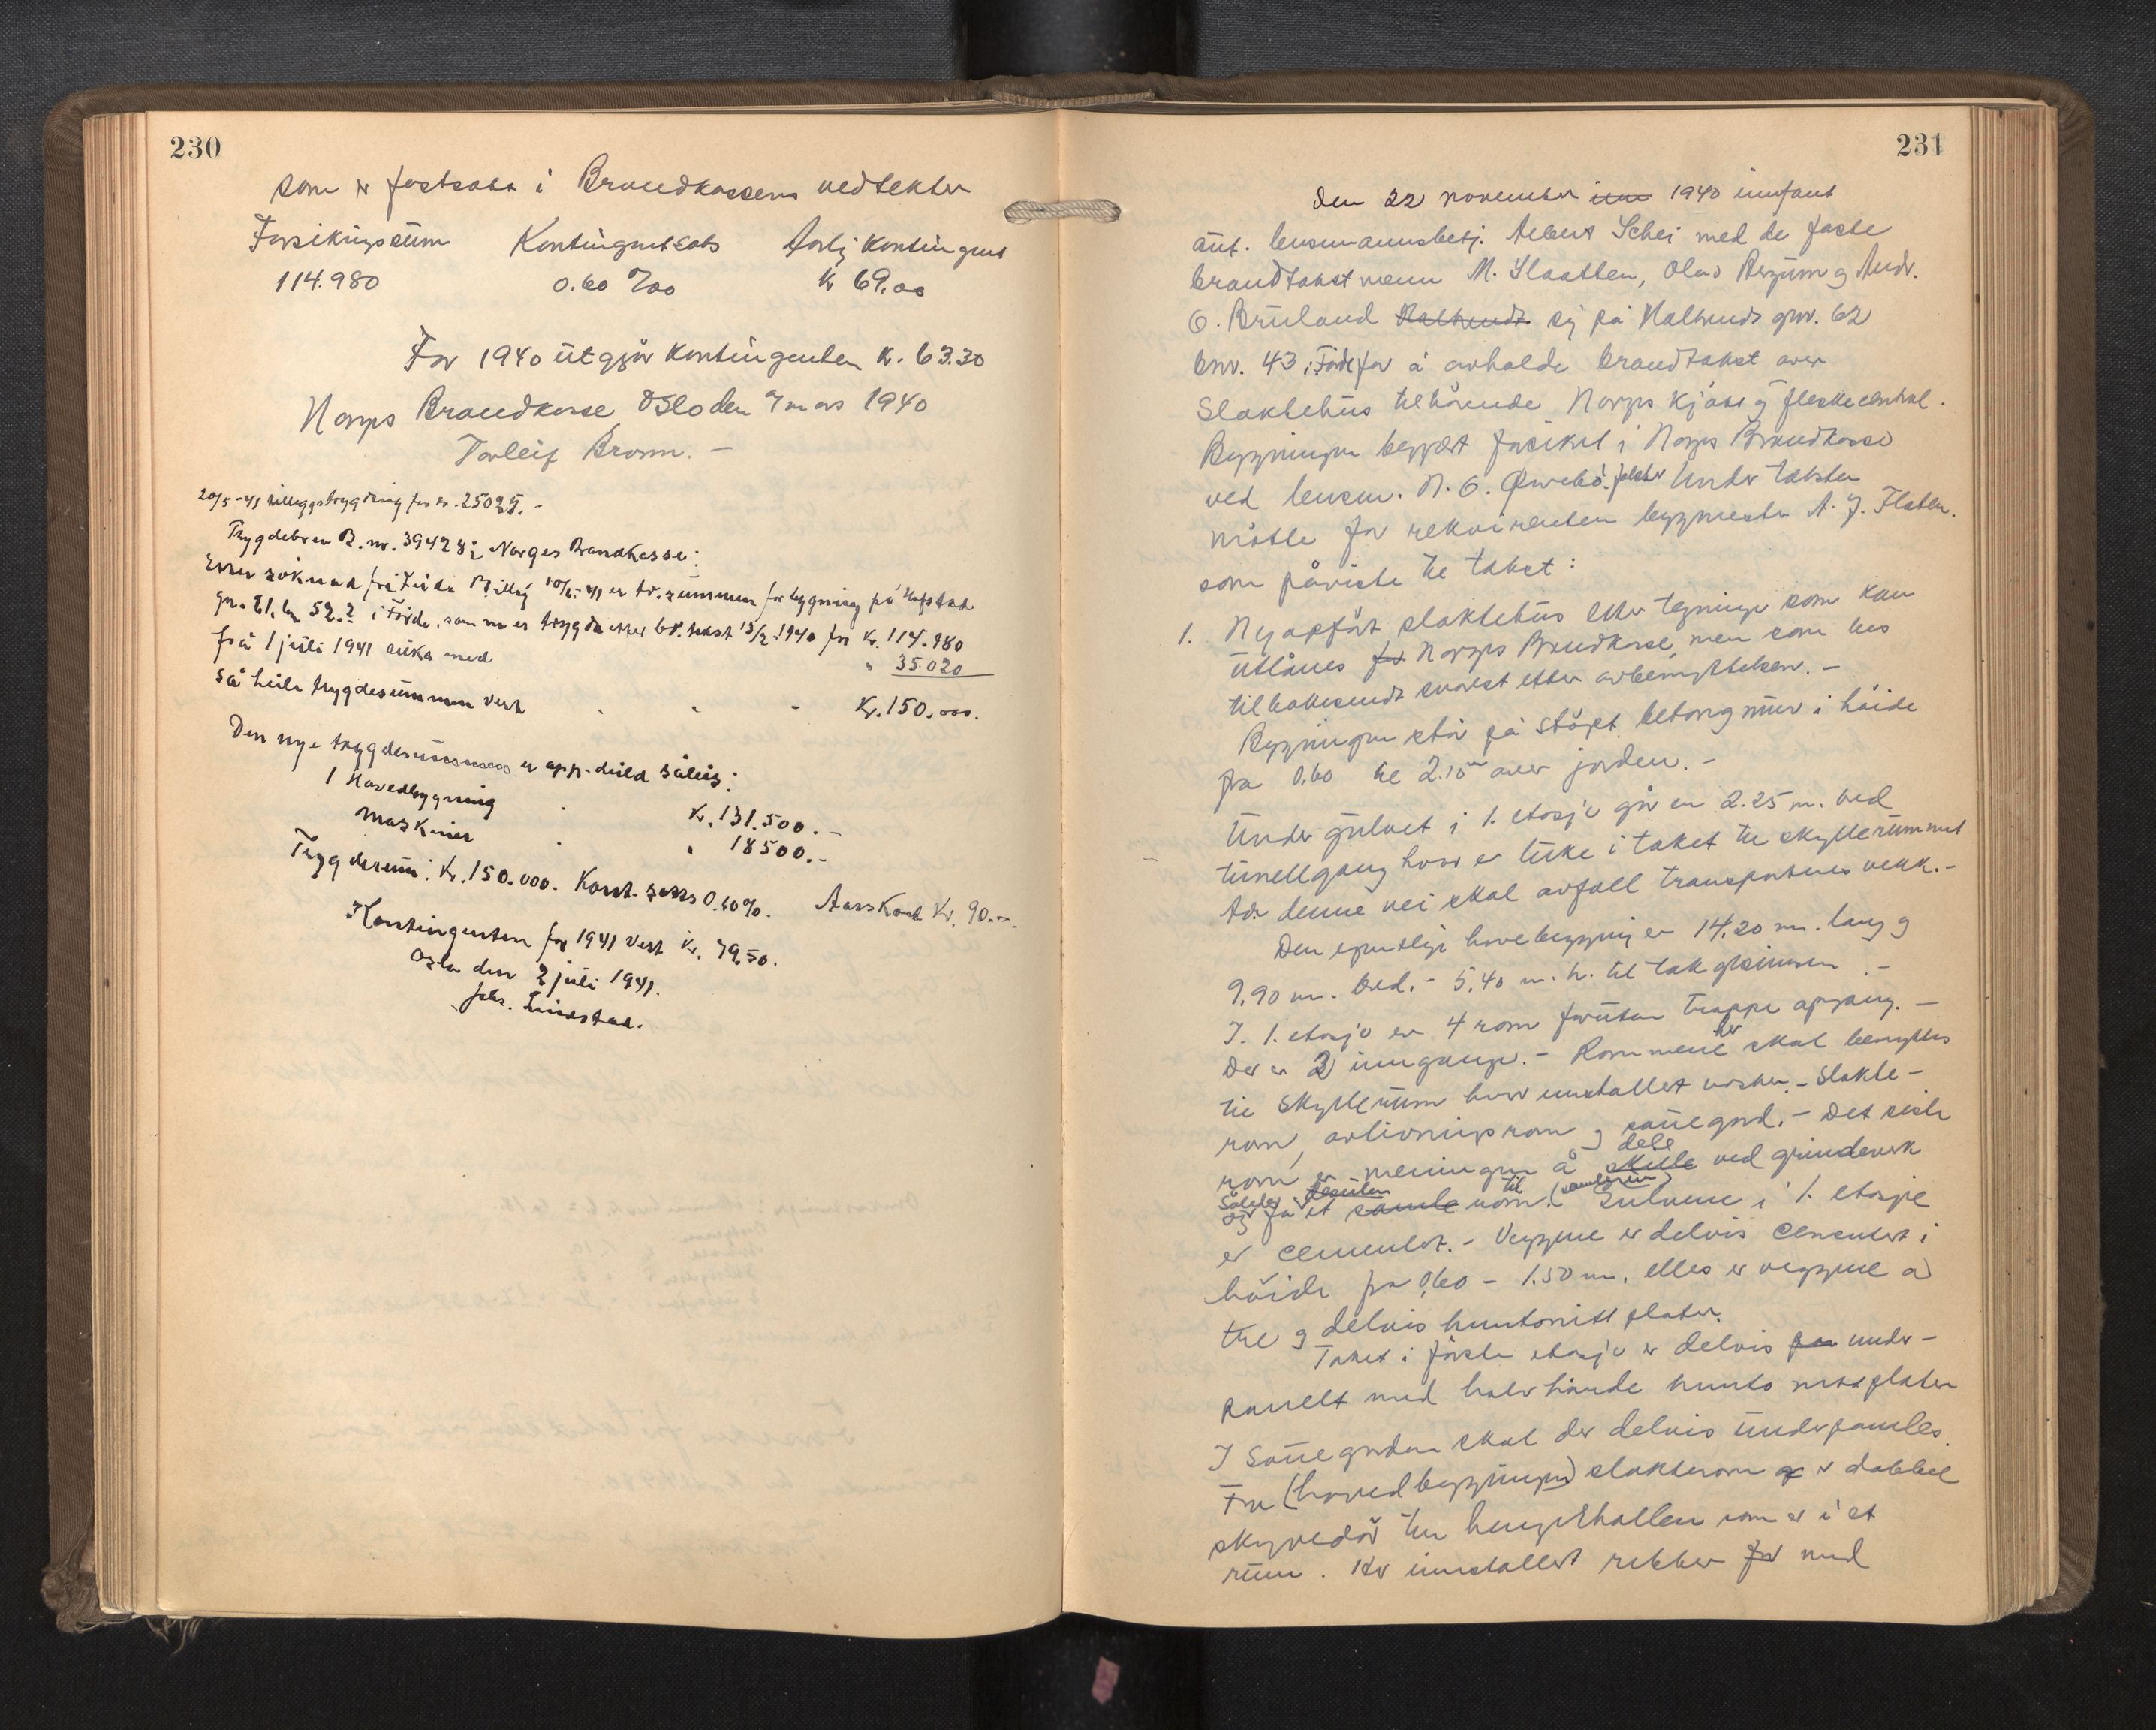 230
som er fastsatt i Brandkassens vedtekter
Forsikringssum Kontingentsats Aarlig Kontingent
114.980 0.60 ‰ kr 69.00
For 1940 utgjør kontingenten kr. 63.30
Norges Brandkasse Oslo den 7 mars 1940
Torleif Bromm. –
20/5-41 tilleggstrygding for kr. 25025.-
Trygdebrev R. nr. 39428 i Norges Brandkasse:
Etter søknad frå 10/5-41 er tr.summen for bygning på Hafstad
gn. 61, bn 52.2 i Førde, som no er trygda etter br.takst 13/2-1940 for Kr. 114.980
frå 1 juli 1941 auka med " 35020
så heile trygdesummen vert - - - Kr. 150.000.
Den nye trygdesummen er opp-deild såleis:
1 Hovedbygning - Kr. 131.500.-
Maskiner - " 18500.-
Trygdesum: Kr. 150.000. Kont. sats 0.60‰. Aarskont Kr. 90.-
Kontingenten for 1941 vert kr. 79.50.
Oslo den 2 juli 1941.
231
Den 22 november 1940 innfant
aut. lensmannsbetj. Albert Schei med de faste
brandtakstmenn M. Slaatten, Olav Bergum og Andr.
O. Bruland sig på Halbrends gnr. 62
bnr. 43 i Førde for å avholde brandtakst over
Slaktehus tilhørende Norges kjøtt og fleskecentral.
Bygningen begjært forsikret i Norges Brandkasse
ved lensm. N. O. Under taksten
møtte for rekvirenten byggmester A. J. Flaten.
som påviste til takst:
1. Nyopført slaktehus etter tegninger som kan
utlånes Norges Brandkasse, men som bes
tilbakesendt snarest etter avbenyttelsen. –
Bygningen står på støpt betongmur i høide
fra 0.60 til 2.10 m over jorden. –
Under gulvet i 1. etasje går en 2.25 m. bred
tunellgang hvor er luke i taket til skyllerummet
Ad denne vei skal avfall transporteres vekk. –
Den egentlige hovebygging er 14.20 m. lang og
9.90 m. bred. – 5.40 m. h. til takgesimsen. –
I. 1. etasje er 4 rom foruten trappe opgang. –
Der er 2 innganger. – Rommene her skal benyttes
til Skyllerum hvor installert vasker. – Slakte-
rom, avlivningsrom og sauegard. – Det siste
rom er meningen å skille dele ved grindverk
Således og få et samle rom. Gulvene i 1. etasje
er cementert. – Veggene er delvis cementert i
høide fra 0,60 – 1.50 m, elles er veggene av
tre og delvis huntonitt plater.
Taket i første etasje er delvis under-
panelt med halvhårde huntonittplater
I Sauegarden skal der delvis underpanles.
Fra (hovedbyggingen) slakterom er dobbel
skyvedør til hengehallen som er i et
rum. Her innstallert rekker for med